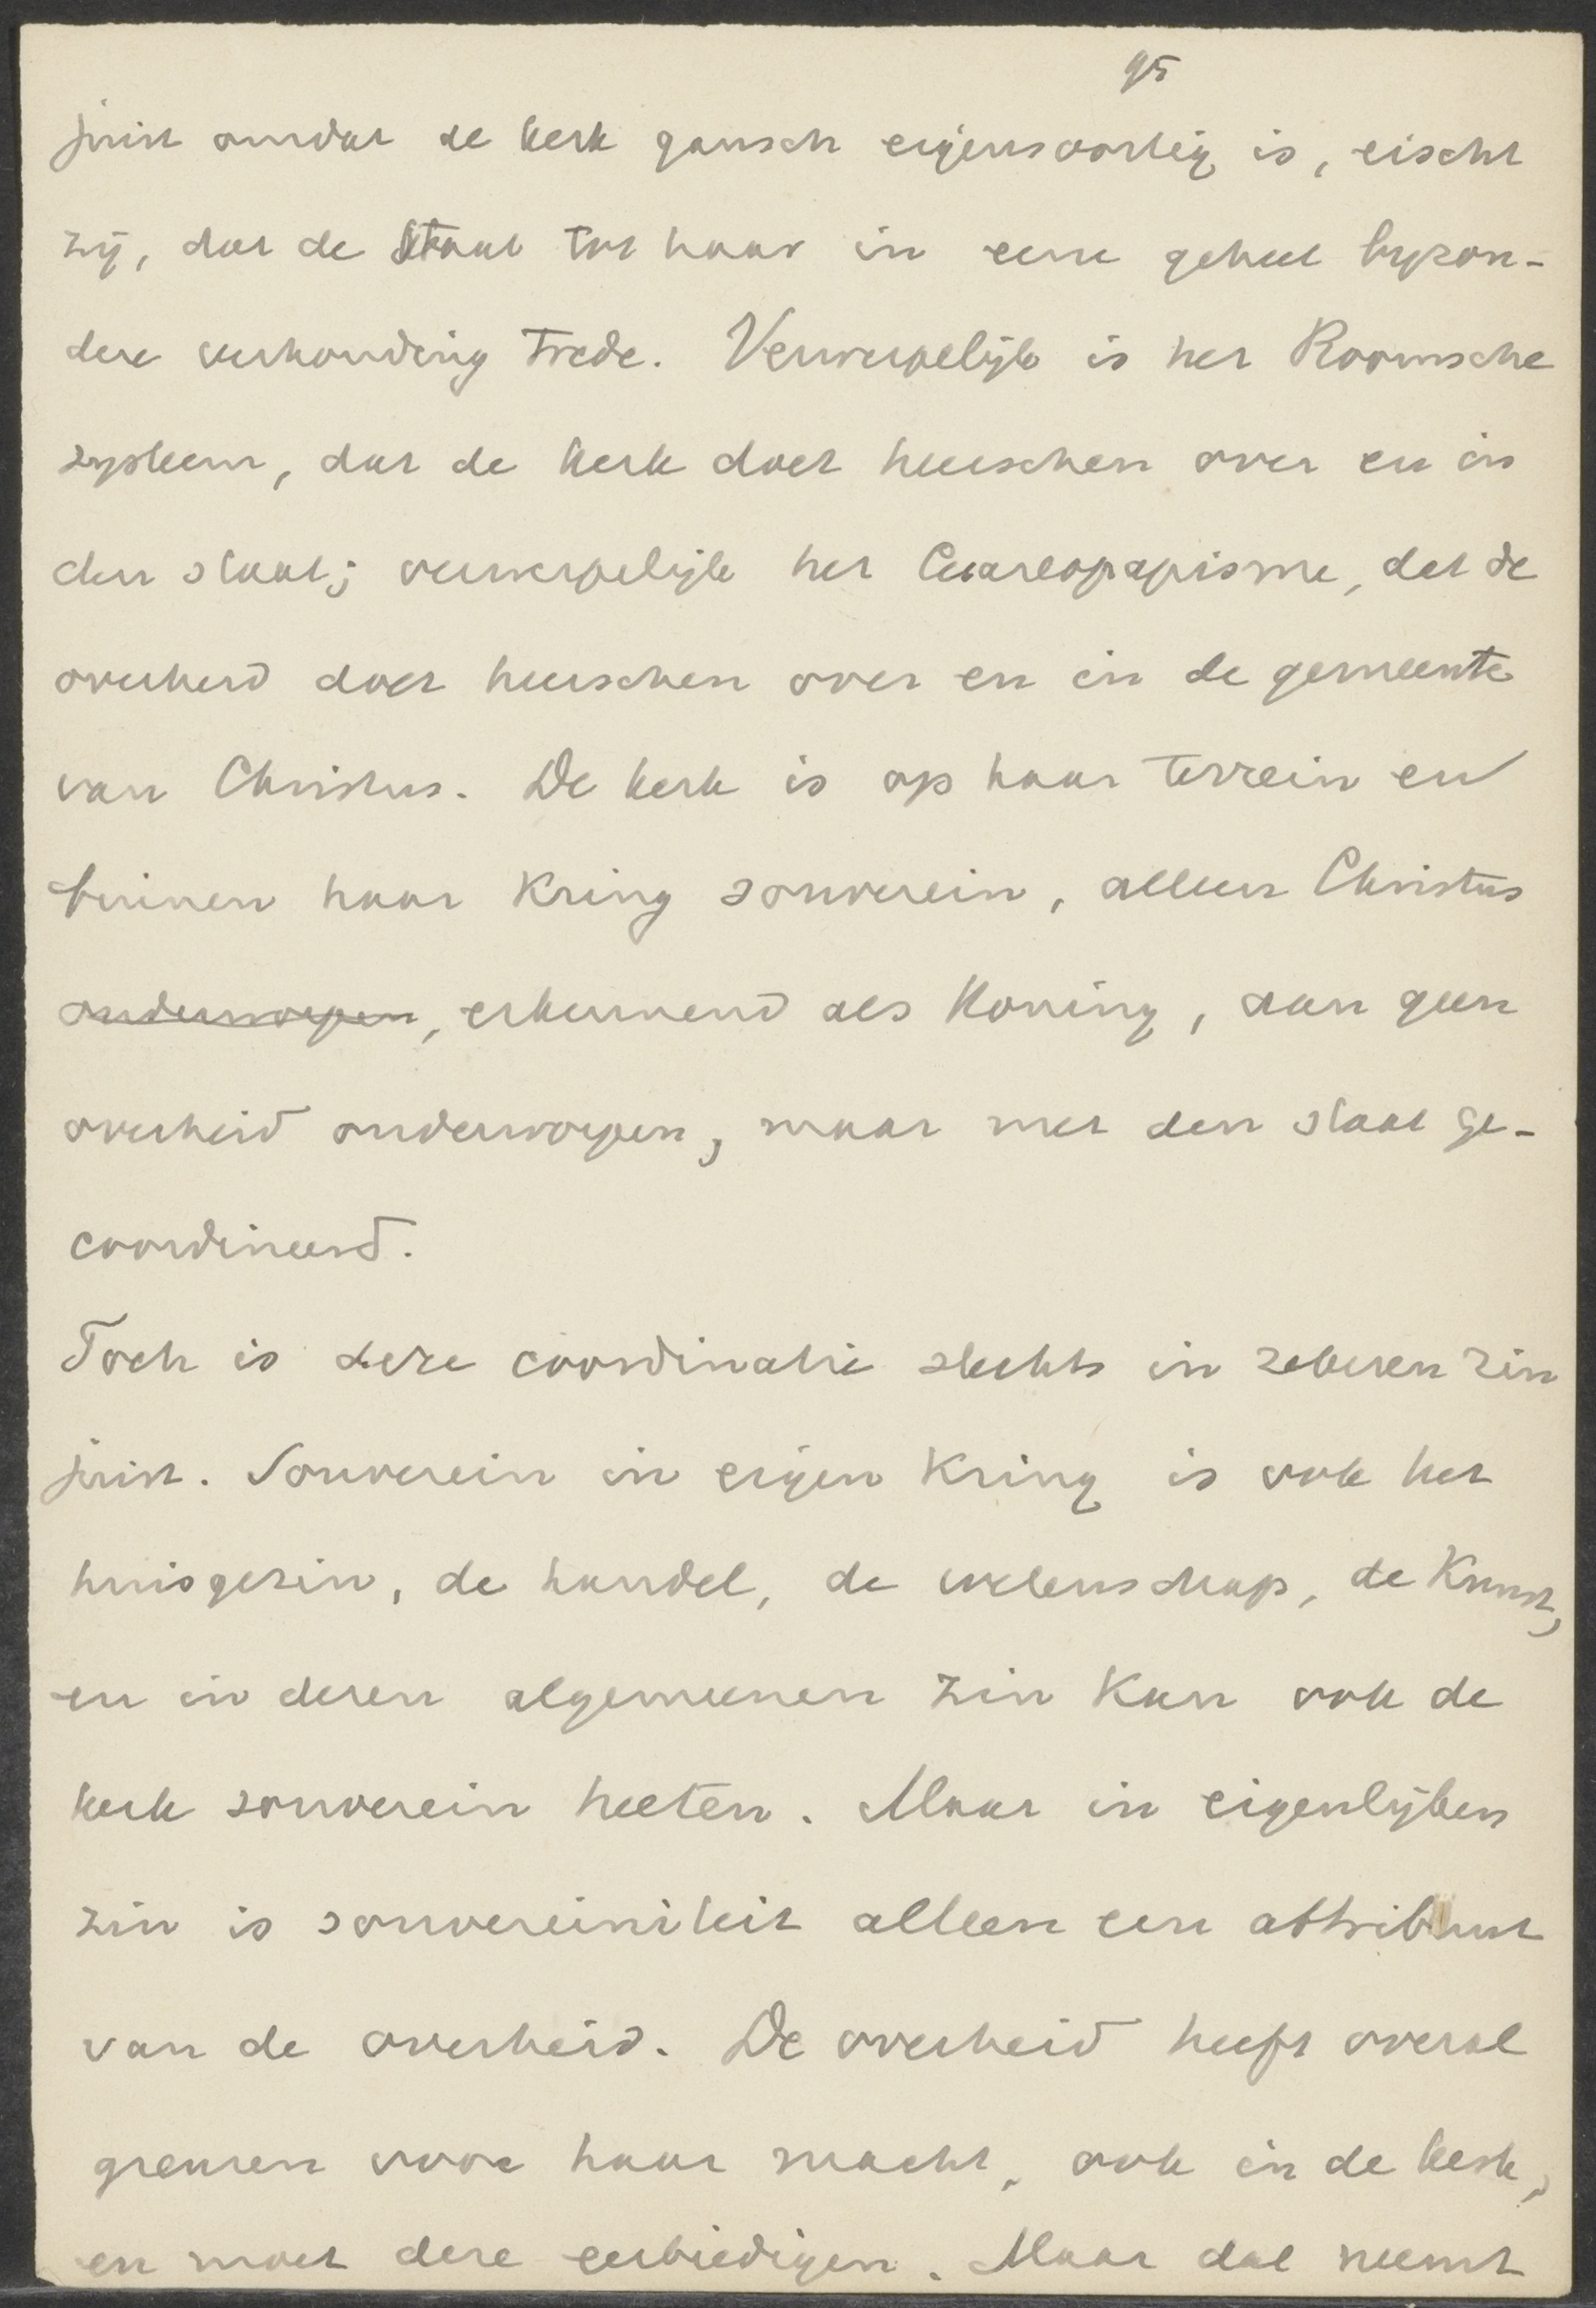 95
juist omdat de kerk gansch eigensoortig is, eischt
zij, dat de staat tot haar in eene geheel byzon-
dere verhouding trede. Verwerpelijk is het Roomsche
systeem, dat de kerk doet heerschen over en in
den staat; verwerpelijk het Cesareopapisme, dat de
overheid doet heerschen over en in de gemeente
van Christus. De kerk is op haar terrein en
binnen haar kring souverein, alleen Christus
onderworpen, erkennend als Koning, aan geen
overheid onderworpen, maar met den staat ge-
coordineerd.
Toch is deze coordinatie slechts in zekeren zin
juist. Souverein in eigen kring is ook het
huisgezin, de handel, de wetenschap, de Kunst,
en in dezen algemeenen zin kan ook de
kerk souverein heeten. Maar in eigenlijken
zin is souvereiniteit alleen een attribuut
van de overheid. De overheid heeft overal
grenzen voor haar macht, ook in de kerk,
en moet deze eerbiedigen. Maar dat neemt